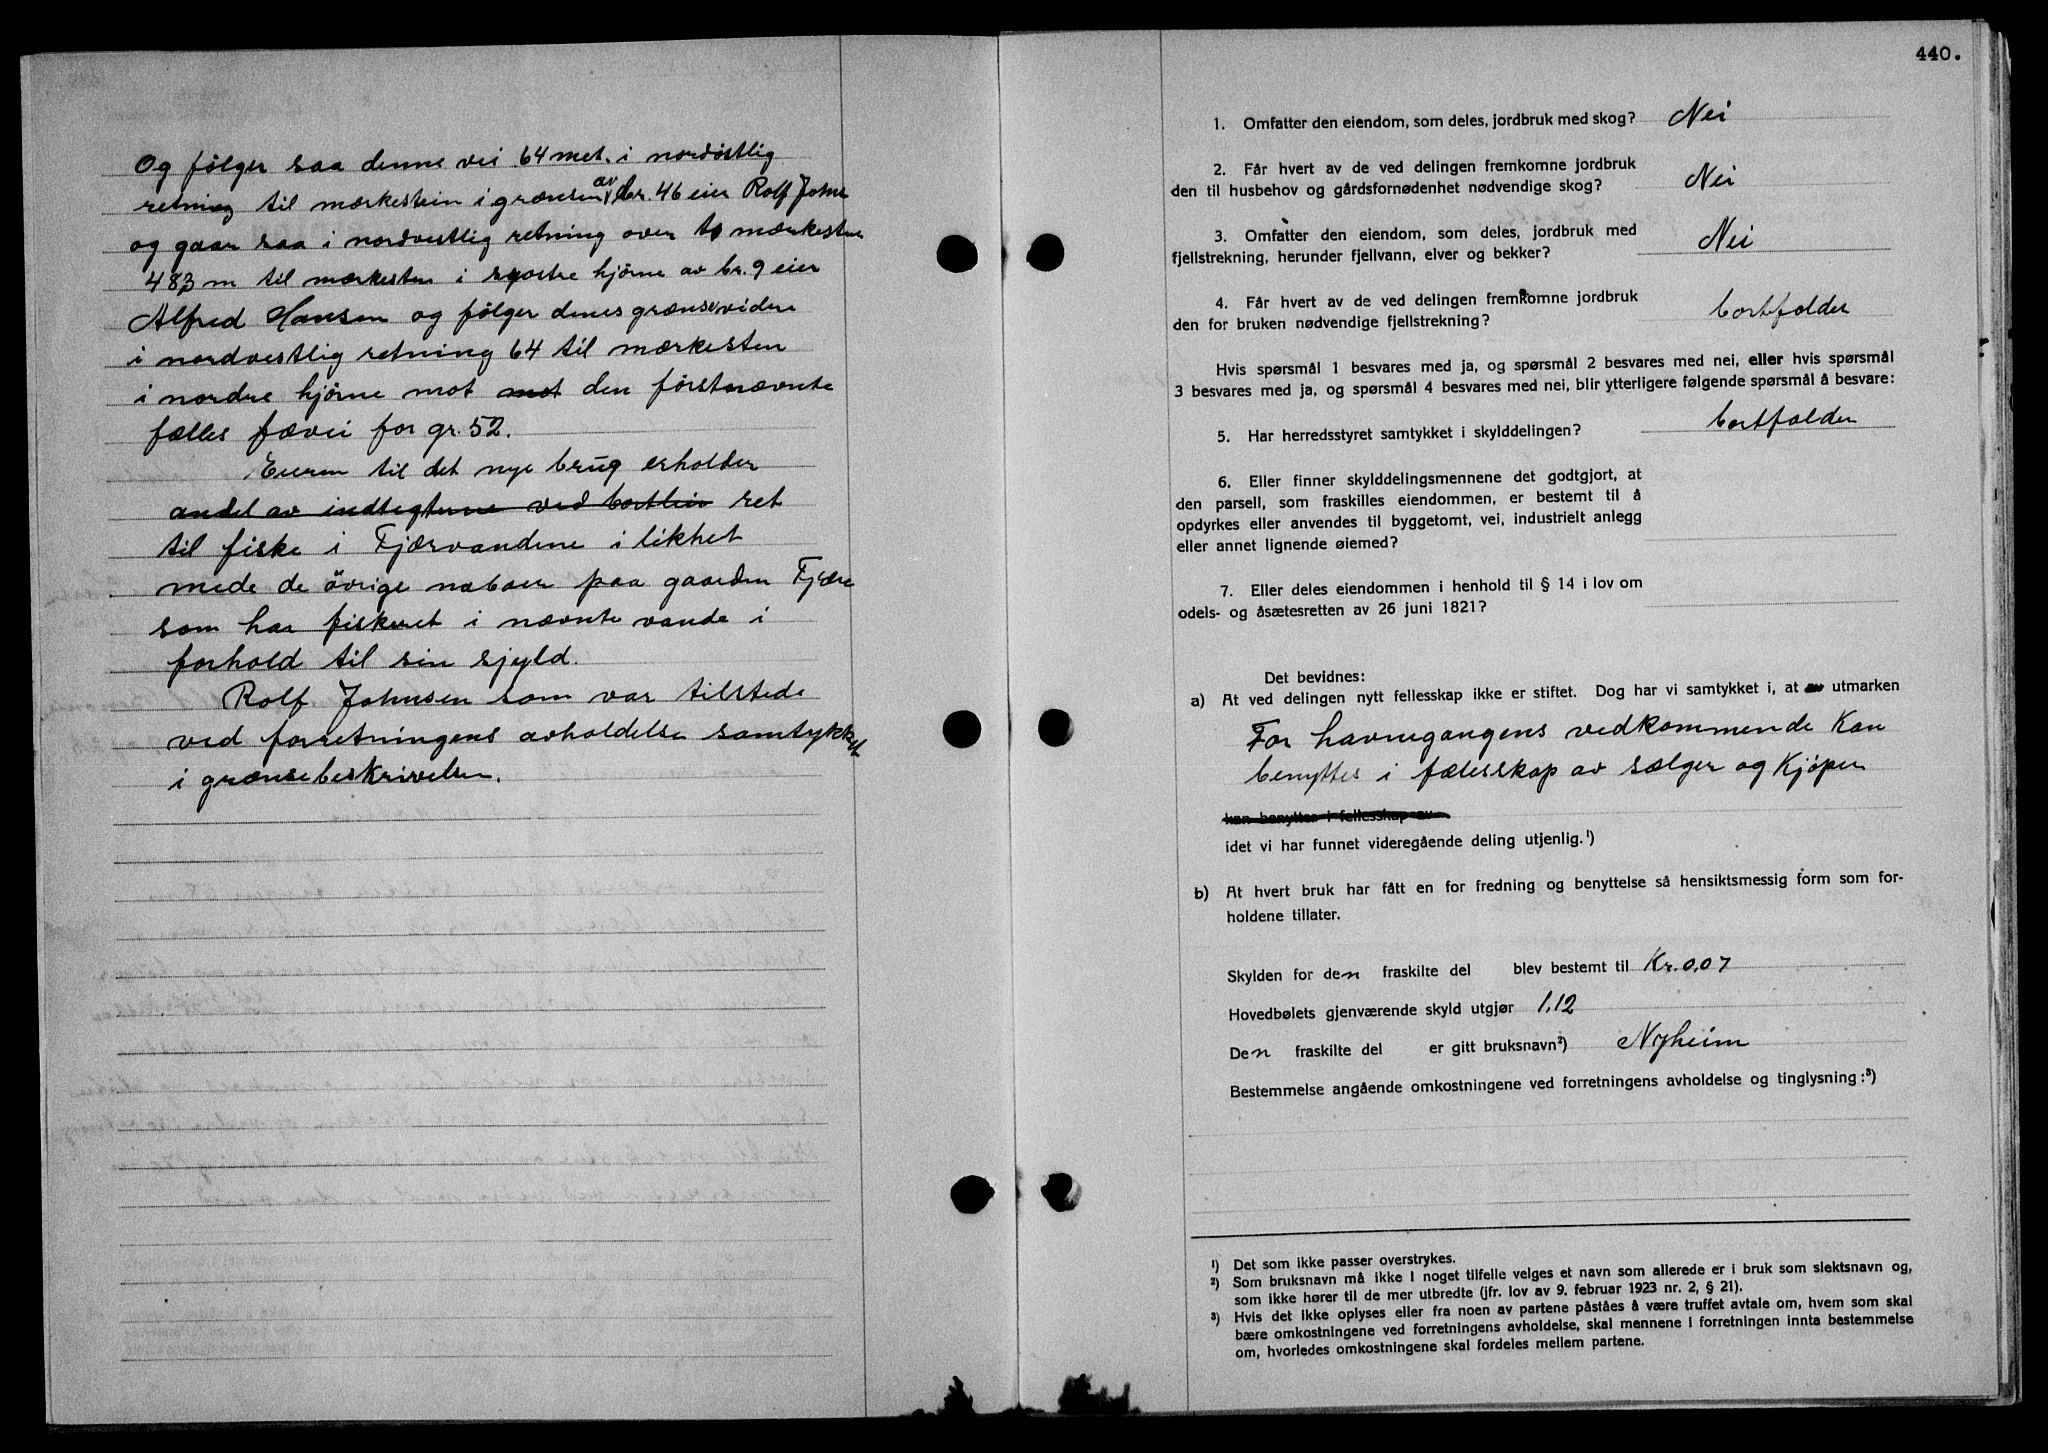 Og følger saa denne vei 64 met. i nordøstlig
retning til mærkestein i grænsen av br. 46 eier Rolf Johns
og gaar saa i nordvestlig retning over to mærkesten
483 m til mærkesten i sydøstre hjörne av br. 9 eier
Alfred Hansen og følger denes grænse videre
i nordvestlig retning 64 til mærkesten
i nordre hjörne mot mot den förstnævnte
fælles fævei for gr. 52.
Eieren til det nye brug erholder
andel av indtegterne ved bortleie ret
til fiske i Fjærvandene i likhet
mede de övrige naboer paa gaarden Fjære
som har fiskeret i nævnte vande i
forhold til sin sjyld.
Rolf Johnsen som var tilstede
ved forretningens avholdelse samtykket
i grænsebeskrivelsen.
440.
1. Omfatter den eiendom, som deles, jordbruk med skog? Nei
2. Får hvert av de ved delingen fremkomne jordbruk
den til husbehov og gårdsfornødenhet nødvendige skog? Nei
3. Omfatter den eiendom, som deles, jordbruk med
fjellstrekning, herunder fjellvann, elver og bekker? Nei
4. Får hvert av de ved delingen fremkomne jordbruk
den for bruken nødvendige fjellstrekning? bortfalder
Hvis spørsmål 1 besvares med ja, og spørsmål 2 besvares med nei, eller hvis spørsmål
3 besvares med ja, og spørsmål 4 besvares med nei, blir ytterligere følgende spørsmål å besvare:
5. Har herredsstyret samtykket i skylddelingen? bortfalder
6. Eller finner skylddelingsmennene det godtgjort, at
den parsell, som fraskilles eiendommen, er bestemt til å
opdyrkes eller anvendes til byggetomt, vei, industrielt anlegg
eller annet lignende øiemed?
7. Eller deles eiendommen i henhold til § 14 i lov om
odels- og åsætesretten av 26 juni 1821?
Det bevidnes:
a) At ved delingen nytt fellesskap ikke er stiftet. Dog har vi samtykket i, at av utmarken
For havnegangens vedkommende kan
benyttes i fælesskap av sælger og kjöper
kan benyttes i fellesskap av
idet vi har funnet videregående deling utjenlig.¹)
b) At hvert bruk har fått en for fredning og benyttelse så hensiktsmessig form som for-
holdene tillater.
Skylden for den fraskilte del blev bestemt til Kr. 0,07
Hovedbølets gjenværende skyld utgjør 1,12
Den fraskilte del er gitt bruksnavn²) Nyheim
Bestemmelse angående omkostningene ved forretningens avholdelse og tinglysning:³)
¹) Det som ikke passer overstrykes.
²) Som bruksnavn må ikke i noget tilfelle velges et navn som allerede er i bruk som slektsnavn og,
som ikke hører til de mer utbredte (jfr. lov av 9. februar 1923 nr. 2, § 21).
³) Hvis det ikke oplyses eller fra noen av partene påståes å være truffet avtale om, hvem som skal
bære omkostningene ved forretningens avholdelse, skal mennene i forretningen innta bestemmelse
om, hvorledes omkostningene skal fordeles mellem partene.